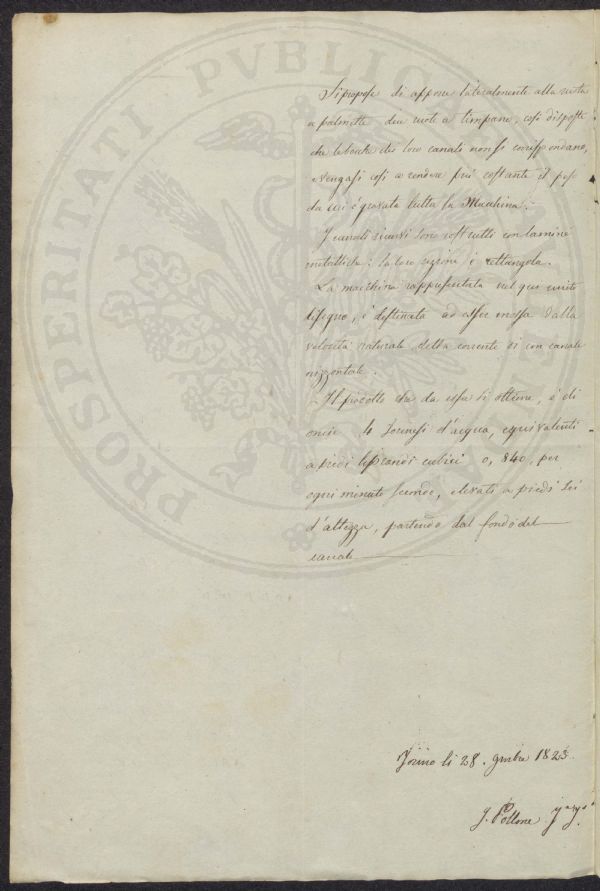 PROSPERITATI PVBLICA
Si propose di apporre lateralmente alla ruota
a palmette due ruote a timpano, così disposte
che le bocche dei loro canali non si corrispondano,
e vengasi così a rendere più costante il peso
da cui è gravata tutta la Macchina.
I canali ricurvi sono costrutti con lamine
metalliche: la loro sezione è rettangola.
La macchina rappresentata nel qui unito
disegno, è destinata ad esser mossa dalla
velocità naturale della corrente di un canale
orizzontale.
Il prodotto che da essa si ottiene, è di
oncie 4 Torinesi d'acqua, equivalenti
a piedi liprandi cubici 0,840, per
ogni minuto secondo, elevati a piedi sei
d'altezza, partendo dal fondo del
canale
Torino li 28. gmbre 1823.
J. Pollone